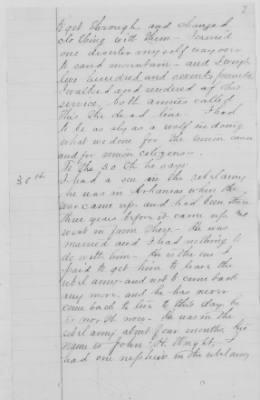 2
to get through and charged
nothing with them - I carried
one deserter my self way over
to sand mountain - and I weigh
two hundred and seventy pounds
I walked and rendered all this
service. both armies called
this the dead line. I had
to be as sly as a wolf in doing
what we done for the union cause
and for union citizens -
30th
To the 30th he says
I had a son in the rebel army
he was in Arkansas when the
war came up and had been there
three years before it came up and
went in from there. He was
married and I had nothing to
do with him. He is the one I
paid to get him to leave the
rebel army and not to come back
any more. and he has never
came back to live to this day he
is now. He was in the
rebel army about four months his
name is John H. Wright. I
had one nephew in the rebel army